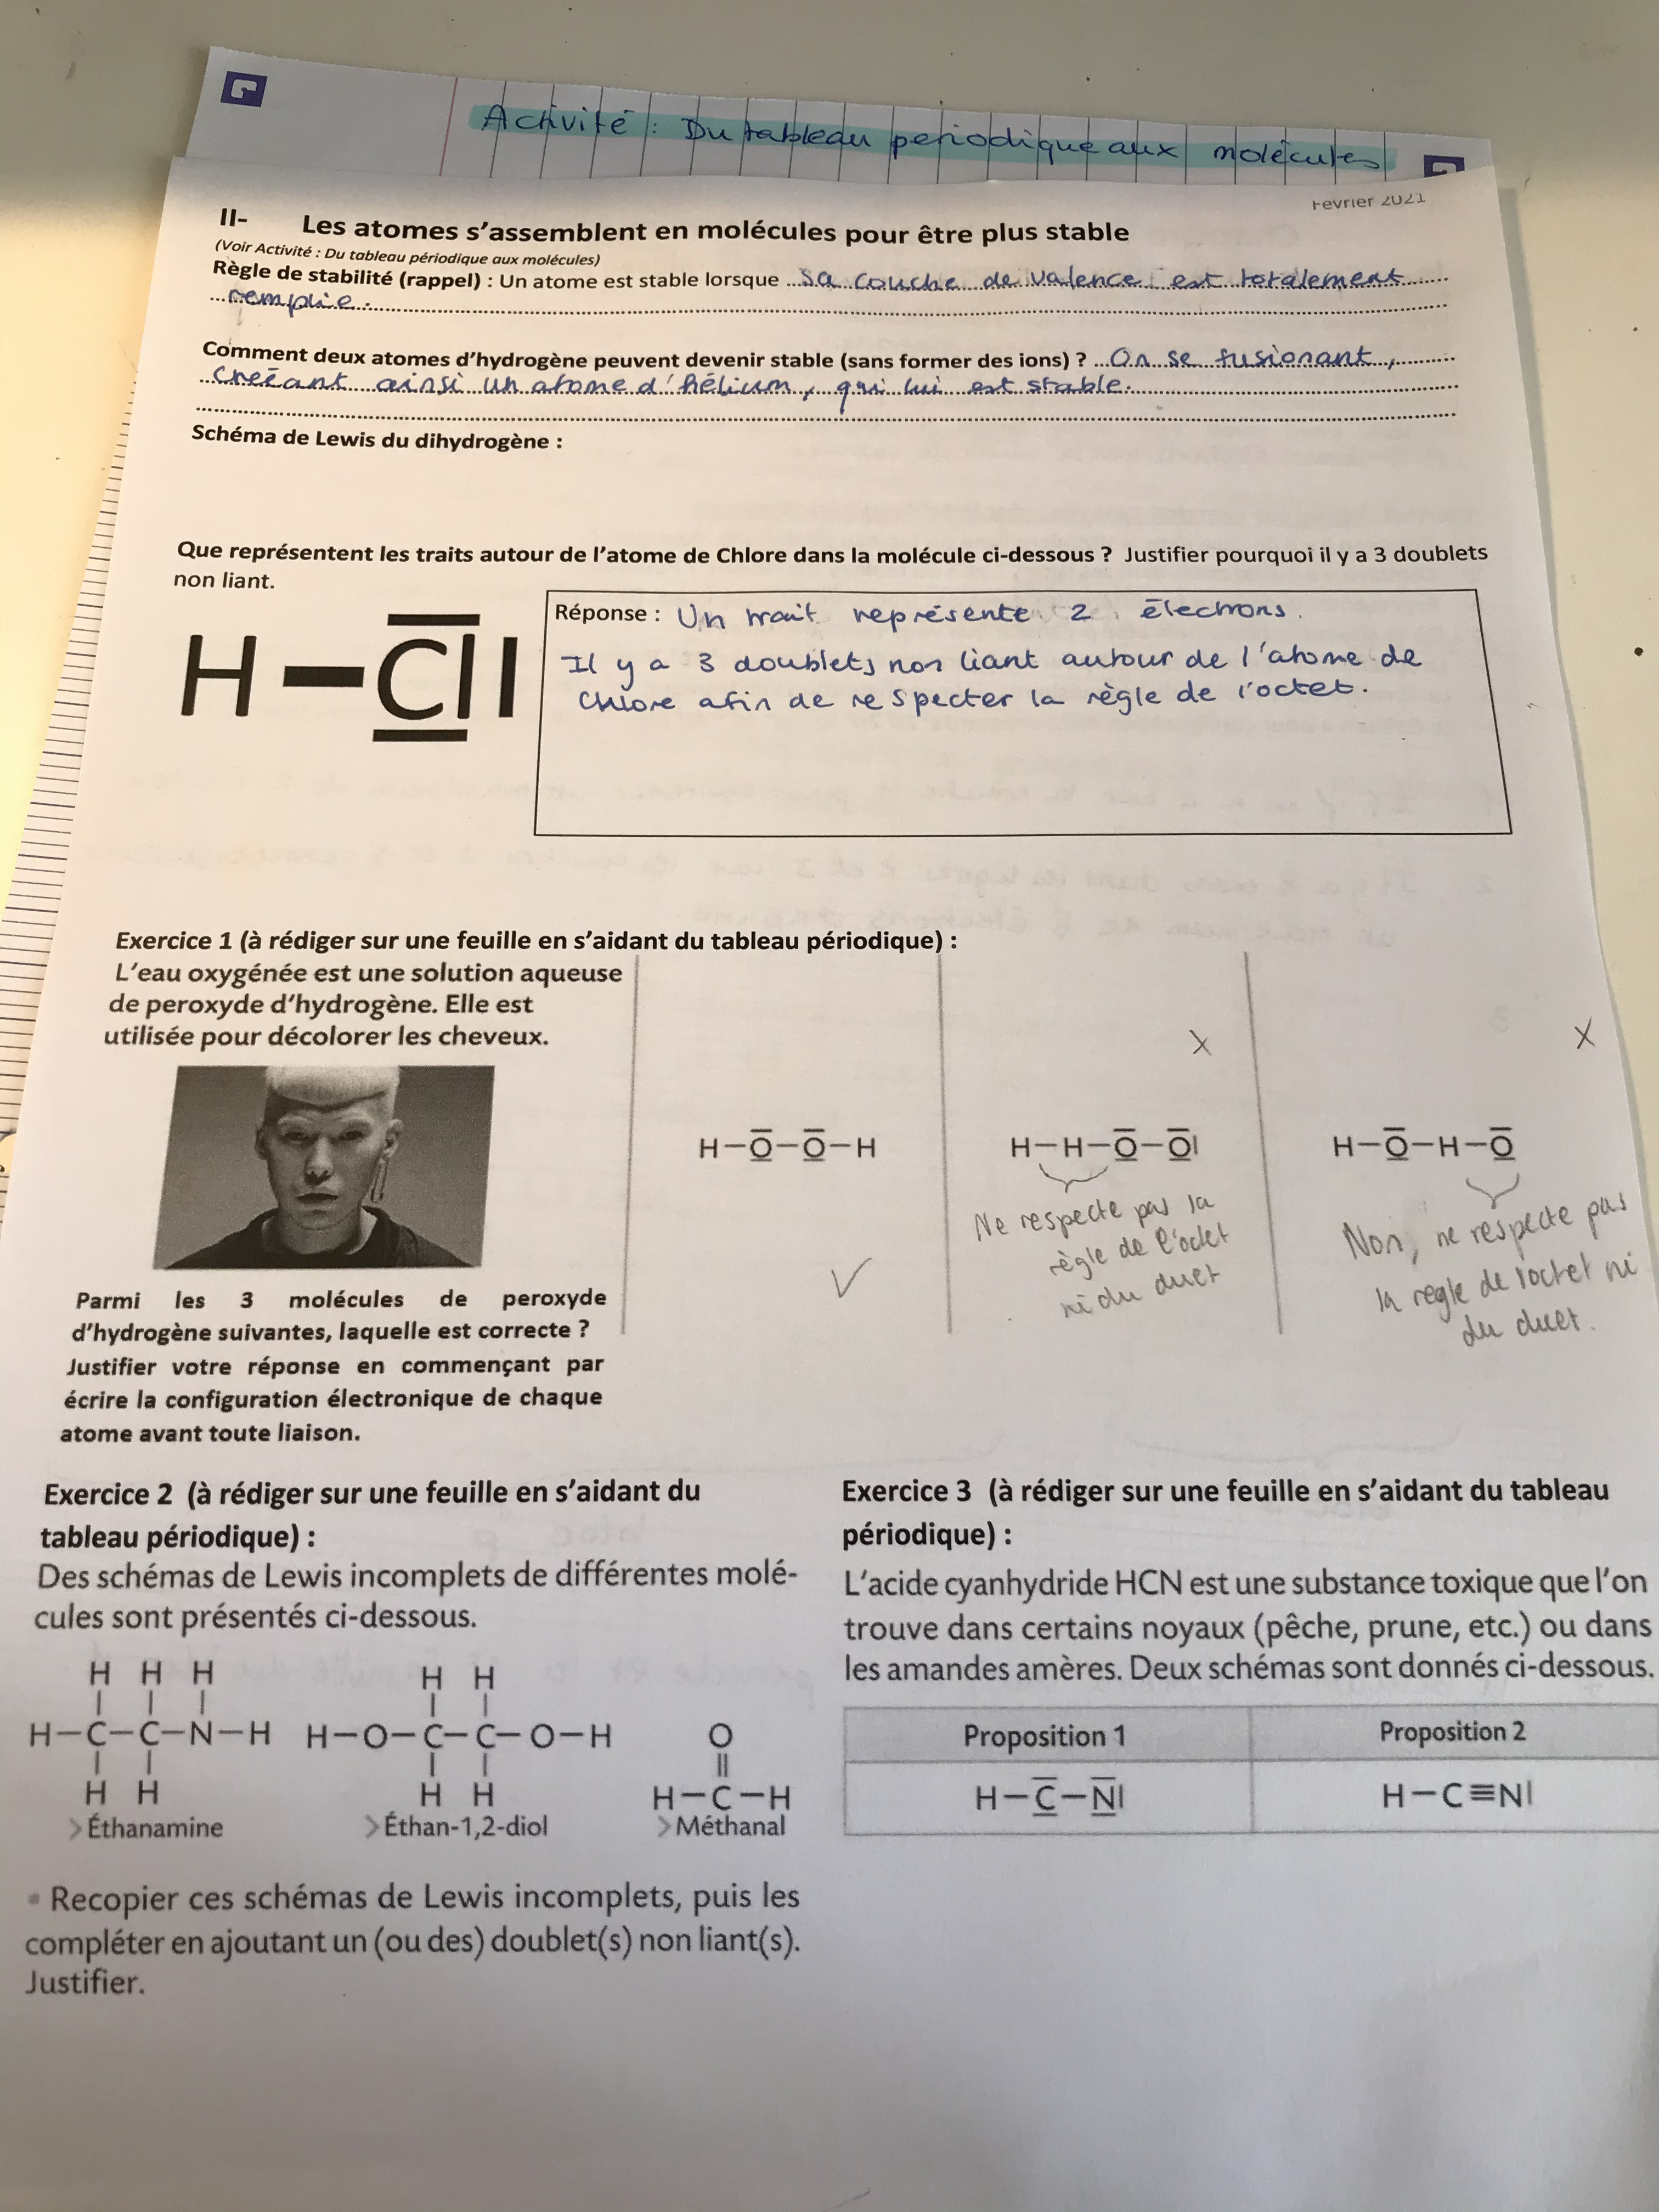 Activité : Du tableau periodique aux molécules
Fevrier 2021
II- Les atomes s'assemblent en molécules pour être plus stable
(Voir Activité : Du tableau périodique aux molécules)
Règle de stabilité (rappel) : Un atome est stable lorsque sa couche de valence est totalement
remplie.
Comment deux atomes d'hydrogène peuvent devenir stable (sans former des ions) ? On se fusionant,
creéant ainsi un atome d'hélium, qui lui est stable.
Schéma de Lewis du dihydrogène :
Que représentent les traits autour de l'atome de Chlore dans la molécule ci-dessous ? Justifier pourquoi il y a 3 doublets
non liant.
H – Cl
Réponse : Un trait représente 2 électrons.
Il y a 3 doublets non liant autour de l'atome de
Chlore afin de respecter la règle de l'octet.
Exercice 1 (à rédiger sur une feuille en s'aidant du tableau périodique) :
L'eau oxygénée est une solution aqueuse
de peroxyde d'hydrogène. Elle est
utilisée pour décolorer les cheveux.
Parmi les 3 molécules de peroxyde
d'hydrogène suivantes, laquelle est correcte ?
Justifier votre réponse en commençant par
écrire la configuration électronique de chaque
atome avant toute liaison.
H–O–O–H
✓
X
H–H–O–O|
Ne respecte pas la
règle de l'octet
ni du duet
X
H–O–H–O
Non, ne respecte pas
la règle de l'octet ni
du duet.
Exercice 2 (à rédiger sur une feuille en s'aidant du
tableau périodique) :
Des schémas de Lewis incomplets de différentes molé-
cules sont présentés ci-dessous.
H H H
H–C–C–N–H
H H
>Éthanamine
H H
H–O–C–C–O–H
H H
>Éthan-1,2-diol
O
||
H–C–H
>Méthanal
▪ Recopier ces schémas de Lewis incomplets, puis les
compléter en ajoutant un (ou des) doublet(s) non liant(s).
Justifier.
Exercice 3 (à rédiger sur une feuille en s'aidant du tableau
périodique) :
L'acide cyanhydride HCN est une substance toxique que l'on
trouve dans certains noyaux (pêche, prune, etc.) ou dans
les amandes amères. Deux schémas sont donnés ci-dessous.
Proposition 1 Proposition 2
H–C–N| H–C≡N|